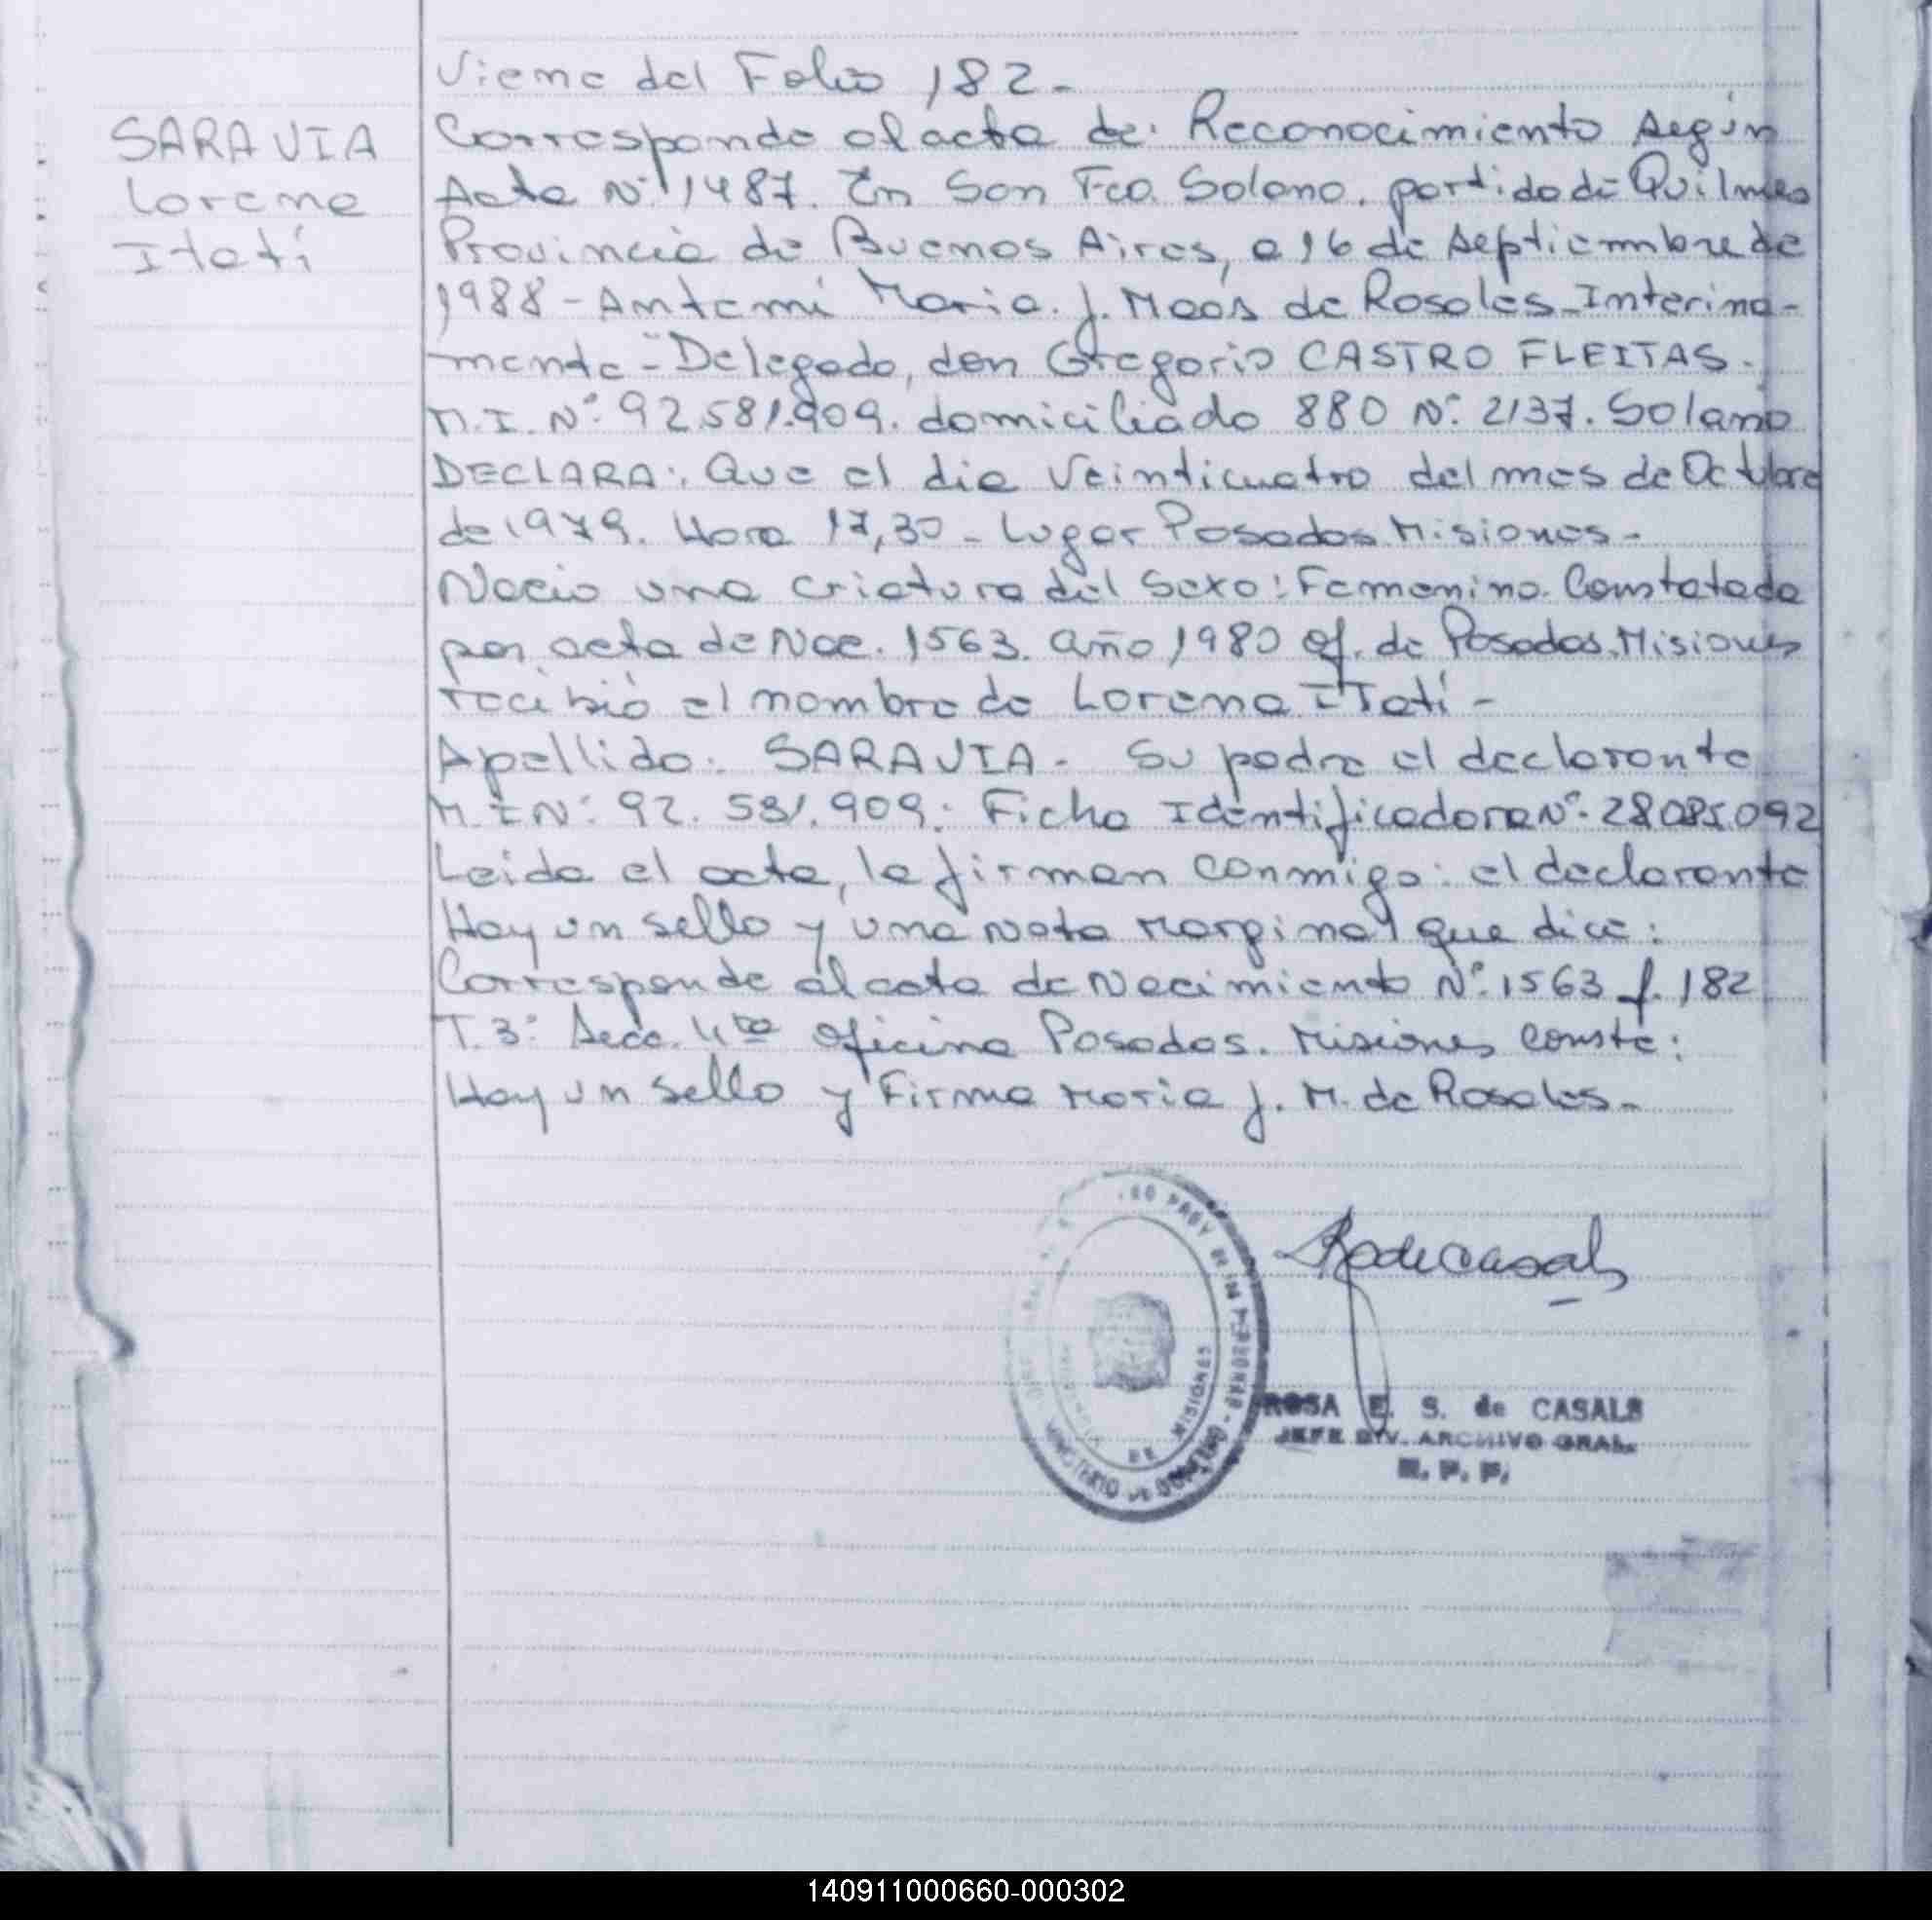 Viene del Folio 182-
SARAVIA
Lorena
Itatí
Corresponde al acta de: Reconocimiento según
Acta Nº 1487. En San Fco. Solano. partido de Quilmes
Provincia de Buenos Aires, a 16 de septiembre de
1988 - Antemí Maria. J. Meós de Rosales - Interina-
mente - Delegado, don Gregorio CASTRO FLEITAS.
M.I. Nº 92.581.909. domiciliado 880 Nº 2137. Solano
DECLARA: Que el dia Veinticuatro del mes de Octubre
de 1979. Hora 17,30 - Lugar Posadas Misiones -
Nacio una criatura del Sexo: Femenino. Constatada
por acta de Nac. 1563. año 1980 of. de Posadas. Misiones
recibió el nombre de Lorena ITatí -
Apellido: SARAVIA - Su padre el declarante
M.I Nº 92. 581.909. Ficha Identificadora Nº 28.085.092
Leida el acta, la firman conmigo: el declarante
Hay un sello y una nota marginal que dice:
Corresponde al acta de Nacimiento Nº 1563 f. 182
T. 3º Secc. 4ta Oficina Posadas. Misiones Conste:
Hay un sello y Firma Maria J. M. de Rosales -
RdeCasals
ROSA E. S. de CASALS
JEFE DIV. ARCHIVO GRAL.
R. P. P.
MINISTERIO DE GOBIERNO
DE MISIONES
140911000660-000302